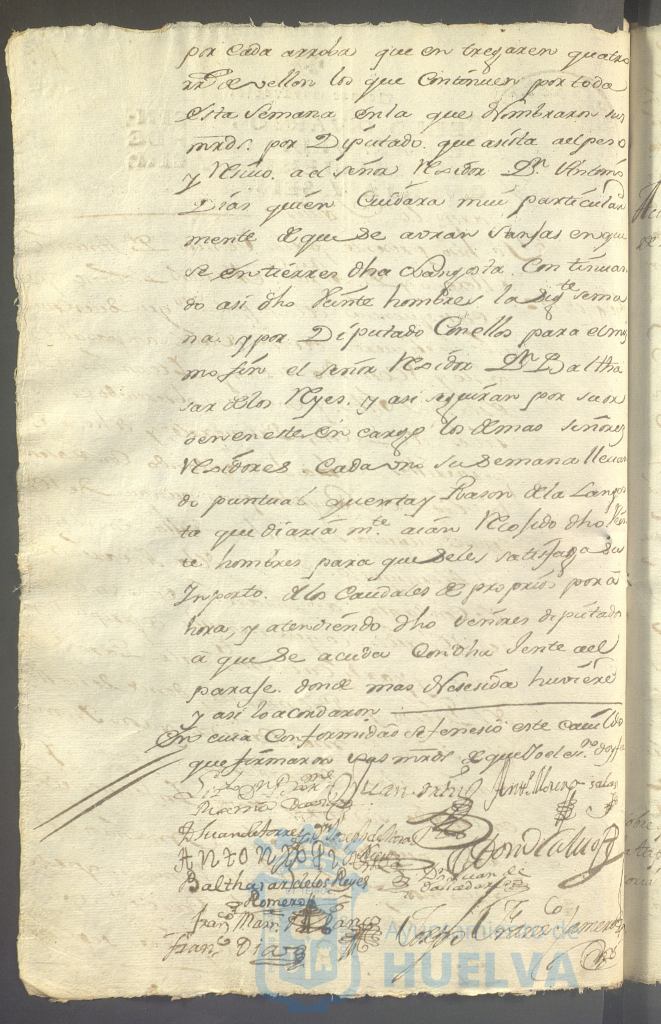 por cada arroba que en tregaren quatro
rr.s de vellon los que Continuen por toda
esta semana en la que Nombraron sus
mrds. por Diputado que asista a el peso
y Resivo. a el señor Residor D.n Antonio
Dias quien Cuidara mui particular
mente de que se avran sanjas en que
se en tierres dha Langosta. Con tinuan
do asi dho Veinte hombres la sig.te sema
na. y por Diputado Con ellos para el mis
mo fin el señor Residor D.n Baltha
sar de los Reyes. y asi seguiran por su or
den en este en cargo los demas señores
Residores Cada uno su semana lleuan
do puntual quenta y Rason de la Langos
ta que diaria m.te aian Recosido dho Vein
te hombres para que se les satisfaga su
Inporto. de los Caudales de proprios por a
hora, y atendiendo dho señores diputado
a que se acuda Con dha Jente a el
paraje. donde mas Nesesida huviere
y asi lo acordaron
En cuia Conformidad se fenesio este Cauildo
que firmaron sus mrds de que Yo el es.no doy fe
Juan Ant.o Moreno salas
Juan de torres
ANTONIO
Balthasar de los Reyes
Romero
Fran.co Mar.n Blanco
Fran.co Diaz
Ayuntamiento de
HUELVA